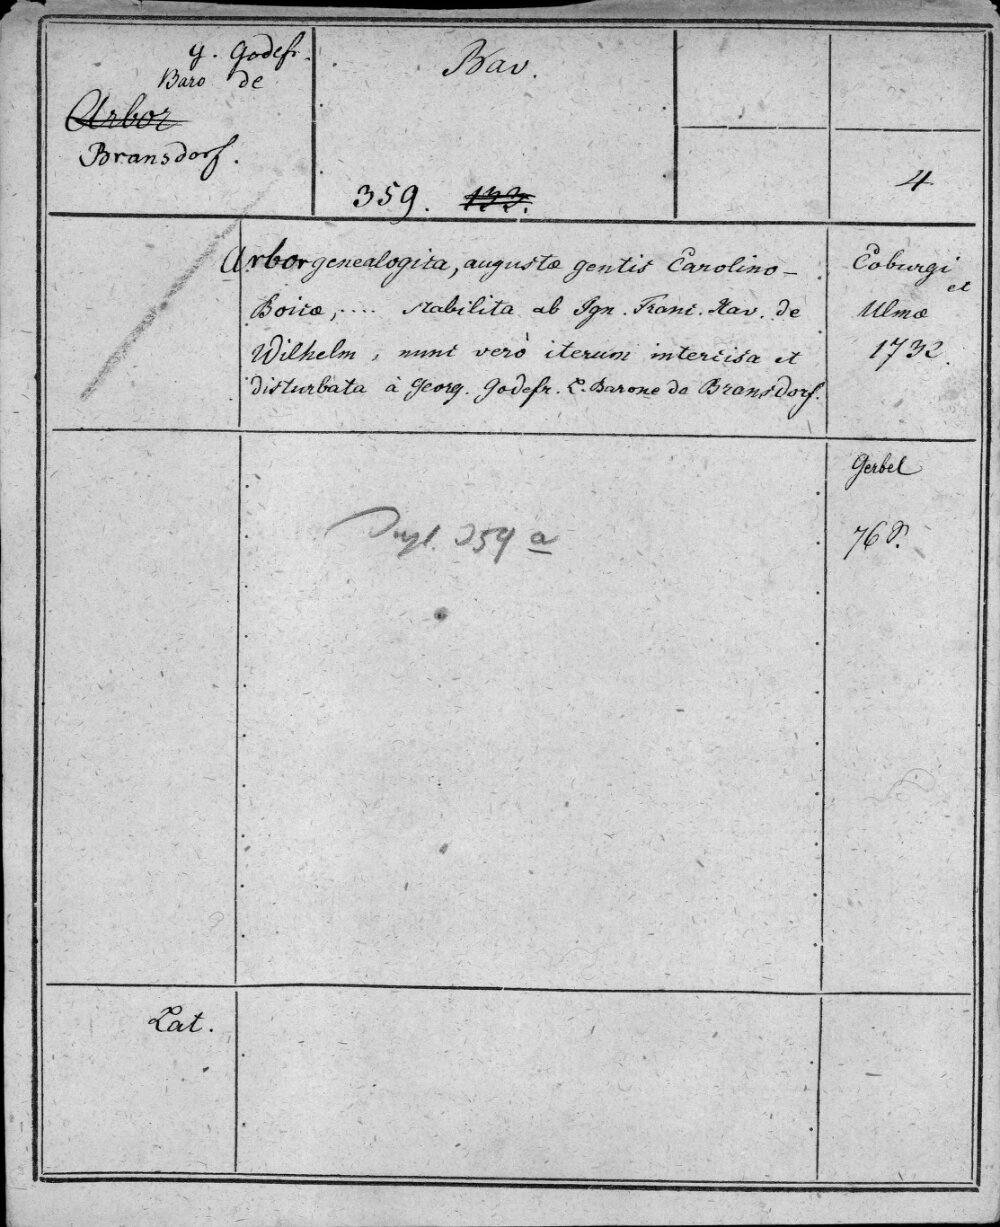 G. Godefr.
Baro de
Arbor
Bransdorf.
Bav.
359. 133.
4
Arbor genealogica, augustæ gentis Carolino-
Boicæ, .... stabilita ab Ign. Franc. Xav. de
Wilhelm, nunc verò iterum intercisa et
disturbata à Georg. Godefr. L. Barone de Bransdorf.
Coburgi
et
Ulmæ
1732.
Gerbel
76 S.
359 a
Lat.